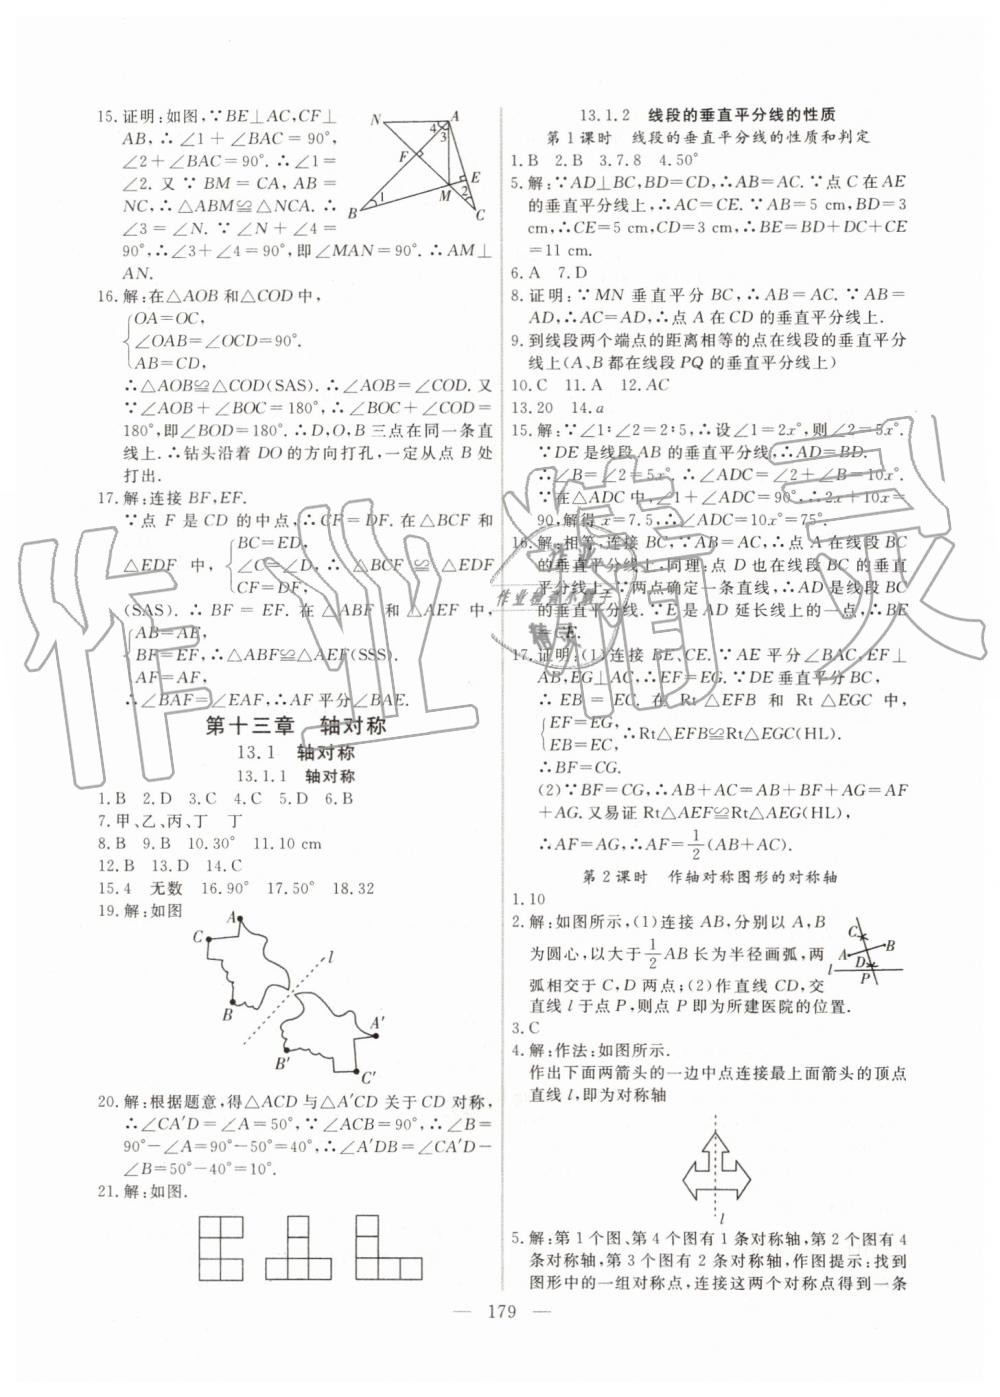 15.证明:如图,∵BE⊥AC,CF⊥
AB,∴∠1+∠BAC=90°,
∠2+∠BAC=90°.∴∠1=
∠2.又∵BM=CA,AB=
NC,∴△ABM≌△NCA.∴
∠3=∠N.∵∠N+∠4=
90°,∴∠3+∠4=90°,即∠MAN=90°.∴AM⊥
AN.
N A 4 3 F E 1 M 2 B C
16.解:在△AOB和△COD中,
OA=OC,
∠OAB=∠OCD=90°.
AB=CD,
∴△AOB≌△COD(SAS).∴∠AOB=∠COD.又
∵∠AOB+∠BOC=180°,∴∠BOC+∠COD=
180°,即∠BOD=180°.∴D,O,B三点在同一条直
线上.∴钻头沿着DO的方向打孔,一定从点B处
打出.
17.解:连接BF,EF.
∵点F是CD的中点,∴CF=DF.在△BCF和
△EDF中,
BC=ED,
∠C=∠D,
CF=DF,
∴△BCF≌△EDF
(SAS).∴BF=EF.在△ABF和△AEF中,
AB=AE,
BF=EF,∴△ABF≌△AEF(SSS).
AF=AF,
∴∠BAF=∠EAF,∴AF平分∠BAE.
第十三章 轴对称
13.1 轴对称
13.1.1 轴对称
1.B 2.D 3.C 4.C 5.D 6.B
7.甲、乙、丙、丁 丁
8.B 9.B 10.30° 11.10 cm
12.B 13.D 14.C
15.4 无数 16.90° 17.50° 18.32
19.解:如图
A C l B A′ B′ C′
20.解:根据题意,得△ACD与△A′CD关于CD对称,
∴∠CA′D=∠A=50°,∵∠ACB=90°,∴∠B=
90°−∠A=90°−50°=40°,∴∠A′DB=∠CA′D−
∠B=50°−40°=10°.
21.解:如图.
13.1.2 线段的垂直平分线的性质
第1课时 线段的垂直平分线的性质和判定
1.B 2.B 3.7.8 4.50°
5.解:∵AD⊥BC,BD=CD,∴AB=AC.∵点C在AE
的垂直平分线上,∴AC=CE.∵AB=5 cm,BD=3
cm,∴CE=5 cm,CD=3 cm,∴BE=BD+DC+CE
=11 cm.
6.A 7.D
8.证明:∵MN垂直平分BC,∴AB=AC.∵AB=
AD,∴AC=AD,∴点A在CD的垂直平分线上.
9.到线段两个端点的距离相等的点在线段的垂直平分
线上(A、B都在线段PQ的垂直平分线上)
10.C 11.A 12.AC
13.20 14.a
15.解:∵∠1∶∠2=2∶5,∴设∠1=2x°,则∠2=5x°.
∵DE是线段AB的垂直平分线,∴AD=BD.
∴∠B=∠2=5x°.∴∠ADC=∠2+∠B=10x°.
∵在△ADC中,∠1+∠ADC=90°,∴2x+10x=
90,解得x=7.5,∴∠ADC=10x°=75°.
16.解:相等,连接BC,∵AB=AC,∴点A在线段BC
的垂直平分线上,同理:点D也在线段BC的垂直
平分线上.∵两点确定一条直线,∴AD是线段BC
的垂直平分线.∵E是AD延长线上的一点,∴BE
=CE.
17.证明:(1)连接BE、CE.∵AE平分∠BAC,EF⊥
AB,EG⊥AC,∴EF=EG.∵DE垂直平分BC,
∴EB=EC.在Rt△EFB和Rt△EGC中,
EF=EG,
EB=EC,
∴Rt△EFB≌Rt△EGC(HL).
∴BF=CG.
(2)∵BF=CG,∴AB+AC=AB+BF+AG=AF
+AG.又易证Rt△AEF≌Rt△AEG(HL),
∴AF=AG,∴AF=1/2(AB+AC).
第2课时 作轴对称图形的对称轴
1.10
2.解:如图所示,(1)连接AB,分别以A,B
为圆心,以大于1/2AB长为半径画弧,两
弧相交于C,D两点;(2)作直线CD,交
直线l于点P,则点P即为所建医院的位置.
C A B D l P
3.C
4.解:作法:如图所示.
作出下面两箭头的一边中点连接最上面箭头的顶点
直线l,即为对称轴
l
5.解:第1个图、第4个图有1条对称轴,第2个图有4
条对称轴,第3个图有2条对称轴,作图提示:找到
图形中的一组对称点,连接这两个对称点得到一条
— 179 —
作业精灵
作业
作业检查小助手
精灵